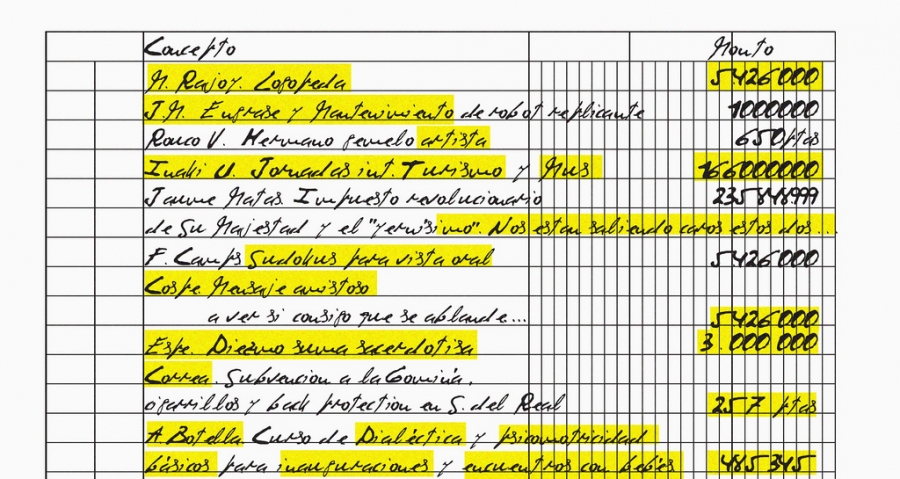 Concepto Monto
M. Rajoy. Logopeda 5426000
J.M. Engrase y Mantenimiento de robot replicante 1000000
Rouco V. Hermano gemelo artista 650 ptas
Iñaki U. Jornadas int. Turismo y Mus 166000000
Jaume Matas Impuesto revolucionario
de Su Majestad y el "yernísimo". Nos están saliendo caros estos dos...
F. Camps Sudokus para vista oral 5426000
Cospe Mensaje amistoso
a ver si consigo que se ablande... 5426000
Espe. Diezmo suma sacerdotisa 3.000 000
Correa. Subvencion a la Gomina,
cigarrillos y back protection en S. del Real 257 ptas
A. Botella Curso de Dialéctica y psicomotricidad
básicos para inauguraciones y encuentros con bebés 485345